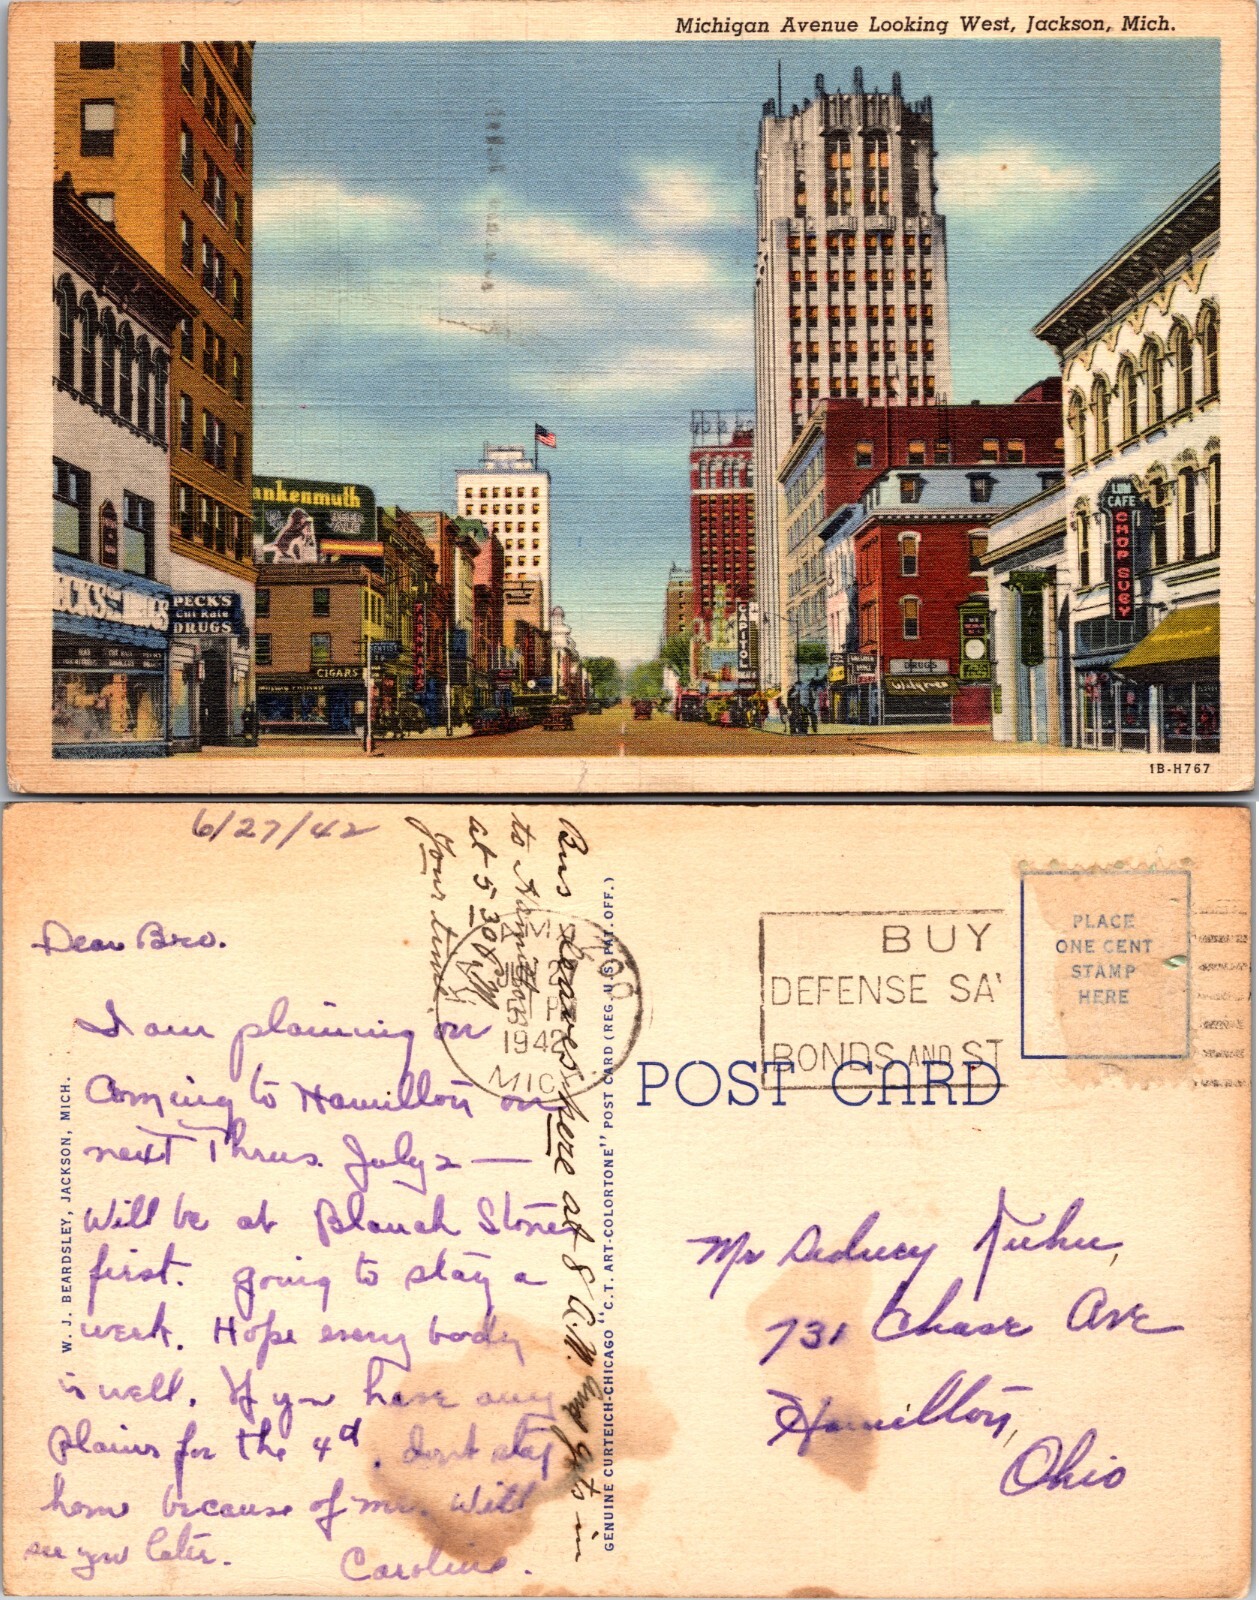 Michigan Avenue Looking West, Jackson, Mich.
ankenmuth
PECK'S
Cut Rate
DRUGS
CIGARS
CAPITOL
DRUGS
CAFE
CHOP SUEY
1B-H767
6/27/42
Dear Bro.
I am plaining on
Coming to Hamilton on
next Thrus. July 2 —
Will be at Blanch Stones
first. going to stay a
week. Hope every body
is well. If you have any
plains for the 4th, dont stay
home because of me. Will
see you later.
Caroline.
Bus leaves here at 8 A.M. and gets in
to Hamilton
at 5 30 P.M.
Your time.
W. J. BEARDSLEY, JACKSON, MICH.
GENUINE CURTEICH-CHICAGO "C.T. ART-COLORTONE" POST CARD (REG. U.S. PAT. OFF.)
1942
MICH
BUY
DEFENSE SAV
BONDS AND ST
PLACE
ONE CENT
STAMP
HERE
POST CARD
Mr Sidney Kuhn,
731 Chase Ave
Hamilton,
Ohio